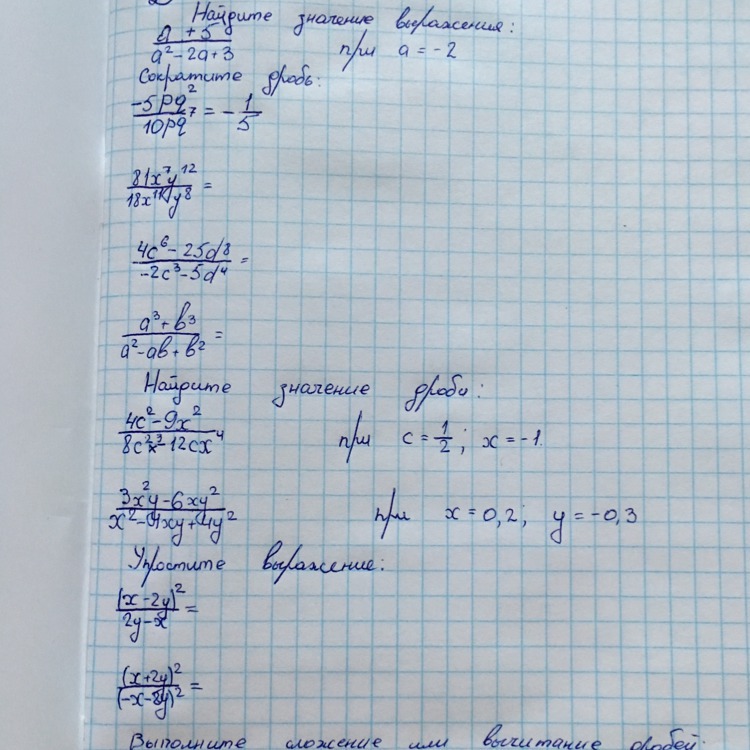 Найдите значение выражения:
(a + 5)/(a² - 2a + 3) при a = -2
Сократите дробь:
(-5pq²)/(10pq⁷) = -1/5
(81x⁷y¹²)/(18x¹¹y⁸) =
(4c⁶ - 25d⁸)/(-2c³ - 5d⁴) =
(a³ + b³)/(a² - ab + b²) =
Найдите значение дроби:
(4c² - 9x²)/(8c²x³ - 12cx⁴) при c = 1/2; x = -1
(3x²y - 6xy²)/(x² - 4xy + 4y²) при x = 0,2; y = -0,3
Упростите выражение:
(x - 2y)²/(2y - x) =
(x + 2y)²/(-x - 2y)² =
Выполните сложение или вычитание дробей: